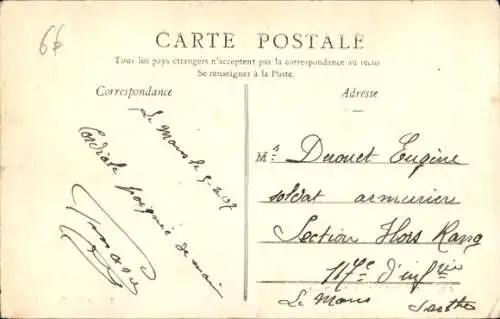 CARTE POSTALE
Tous les pays étrangers n'acceptent pas la correspondance au recto
Se renseigner à la Poste.
Correspondance
Adresse
Le Mans le
Cordiale poignée de main
Mr Eugène
soldat armurier
Section Hors Rang
117e d'infrie
Le Mans Sarthe